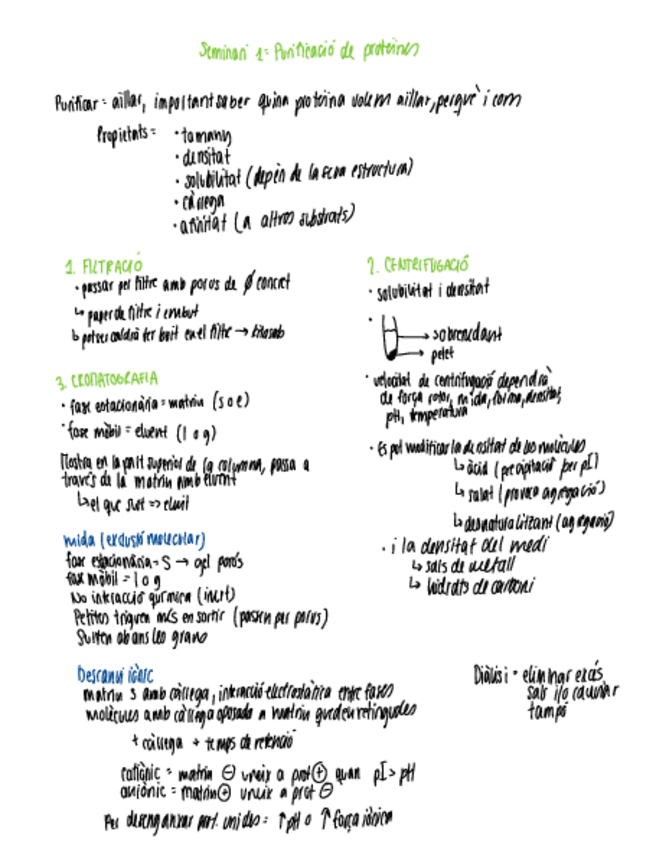 Seminari 1: Purificació de proteïnes
Purificar = aïllar, important saber quina proteïna volem aïllar, perquè i com
Propietats =
· tamany
· densitat
· solubilitat (depèn de la seva estructura)
· càrrega
· afinitat (a altres substrats)
1. FILTRACIÓ
· passar per filtre amb porus de ø concret
↳ paper de filtre i embut
↳ potser caldrà fer buit en el filtre → kitasato
2. CENTRIFUGACIÓ
· solubilitat i densitat
· → sobrenedant
→ pelet
· velocitat de centrifugació dependrà
de força rotor, mida, forma, densitat,
pH, temperatura
· Es pot modificar la densitat de les molècules
↳ àcid (precipitació per pI)
↳ salat (provoca agregació)
↳ desnaturalitzant (agregació)
· i la densitat del medi
↳ sals de metall
↳ hidrats de carboni
3. CROMATOGRAFIA
· fase estacionària = matriu (s o l)
· fase mòbil = eluent (l o g)
Mostra en la part superior de la columna, passa a
través de la matriu amb eluent
↳ el que surt => eluït
mida (exclusió molecular)
fase estacionària = S → gel porós
fase mòbil = l o g
No interacció química (inert)
Petites triguen més en sortir (passen per porus)
Surten abans les grans
Descanvi iònic
matriu S amb càrrega, interacció electrostàtica entre fases
molècules amb càrrega oposada a matriu queden retingudes
+ càrrega + temps de retenció
catiònic = matriu ⊖ uneix a prot ⊕ quan pI > pH
aniònic = matriu ⊕ uneix a prot ⊖
Per desenganxar prot. unides = ↑ pH o ↑ força iònica
Diàlisi = eliminar excés
sals i/o canviar
tampó